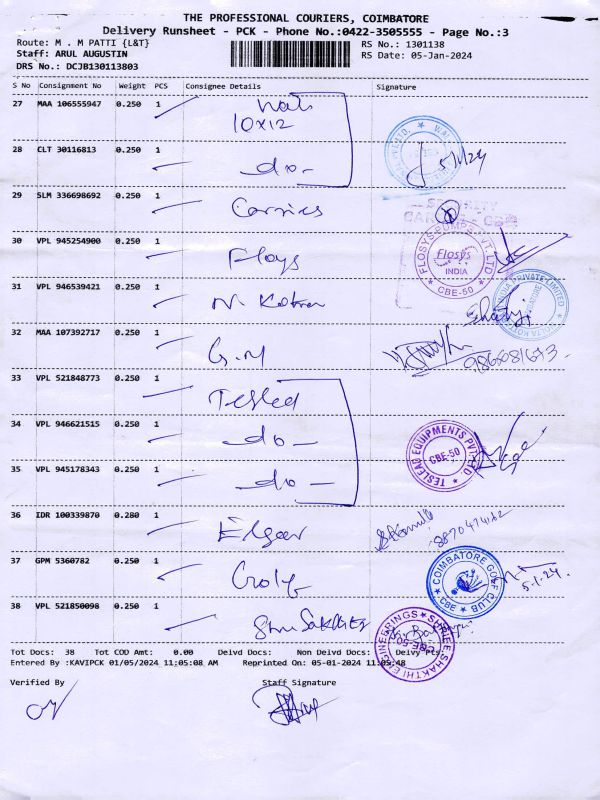 THE PROFESSIONAL COURIERS, COIMBATORE
Delivery Runsheet - PCK - Phone No.:0422-3505555 - Page No.:3
Route: M . M PATTI {L&T} RS No.: 1301138
Staff: ARUL AUGUSTIN RS Date: 05-Jan-2024
DRS No.: DCJB130113803
S No Consignment No Weight PCS Consignee Details Signature
27 MAA 106555947 0.250 1
10x12
28 CLT 30116813 0.250 1 do- 5/1/24
29 SLM 336698692 0.250 1 SECURITY
30 VPL 945254900 0.250 1 Floys FLOSYS PUMPS PVT LTD Flosys INDIA CBE-50
31 VPL 946539421 0.250 1 PRIVATE LIMITED
32 MAA 107392717 0.250 1 G.M
33 VPL 521848773 0.250 1 Tesled
34 VPL 946621515 0.250 1 do - TESLEAD EQUIPMENTS PVT. LTD CBE-50
35 VPL 945178343 0.250 1 do -
36 IDR 100339870 0.280 1 Elgaer
37 GPM 5360782 0.250 1 Golf COIMBATORE GOLF CLUB CBE 5.1.24.
38 VPL 521850098 0.250 1 SHREE SHAKTHI ENGINEERINGS CBE-50
Tot Docs: 38 Tot COD Amt: 0.00 Delvd Docs: Non Delvd Docs: Delvy Pts:
Entered By :KAVIPCK 01/05/2024 11:05:08 AM Reprinted On: 05-01-2024 11:05:48
Verified By Staff Signature